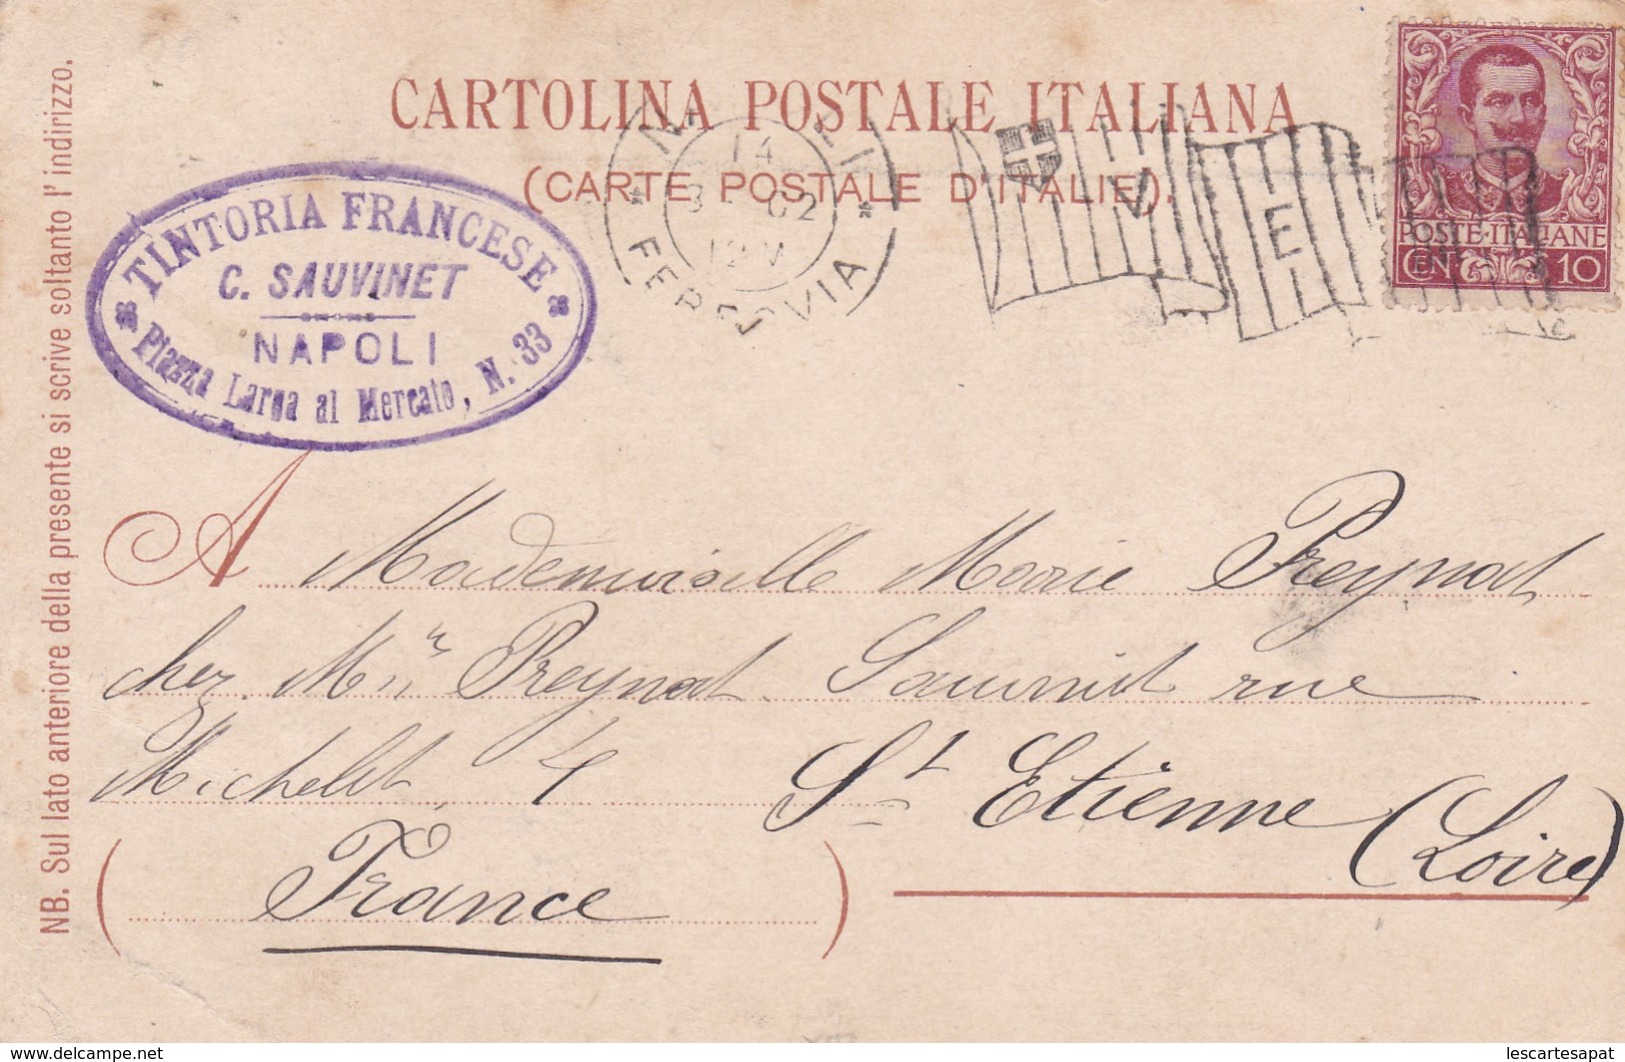 CARTOLINA POSTALE ITALIANA
(CARTE POSTALE D'ITALIE).
TINTORIA FRANCESE
C. SAUVINET
NAPOLI
Piazza Larga al Mercato, N. 33
14
3 02
12 M
FERROVIA
V E
POSTE·ITALIANE
CEN. 10
NB. Sul lato anteriore della presente si scrive soltanto l'indirizzo.
A Mademoiselle Marie Preynat
chez Mr Preynat Sauvinet rue
Michelet 4 St Etienne (Loire)
(France)
www.delcampe.net
lescartesapat